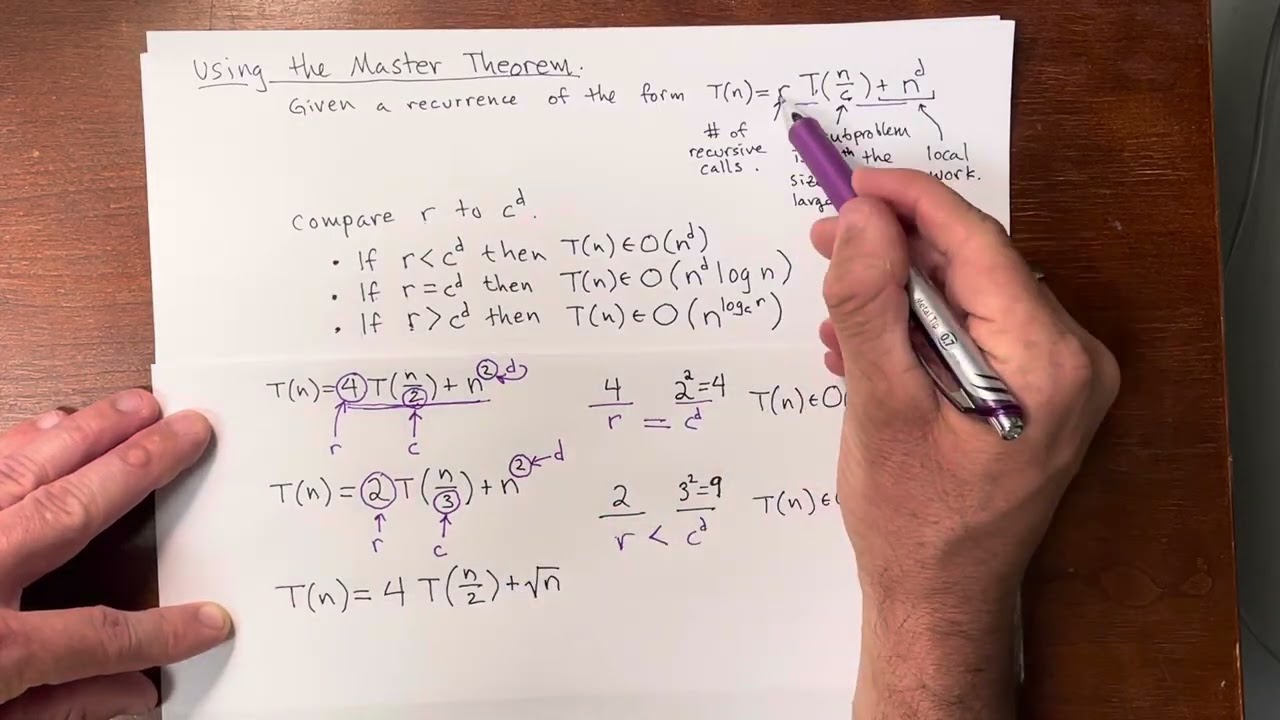 Using the Master Theorem.
Given a recurrence of the form T(n) = r T(n/c) + n^d
# of recursive calls.
subproblem
the
local work.
Compare r to c^d.
• If r < c^d then T(n) ∈ O(n^d)
• If r = c^d then T(n) ∈ O(n^d log n)
• If r > c^d then T(n) ∈ O(n^(log_c r))
T(n) = 4 T(n/2) + n^2 d
4 2^2=4 T(n) ∈ O(
r c r = c^d
T(n) = 2 T(n/3) + n^2 ← d
2 3^2=9 T(n) ∈
r c r < c^d
T(n) = 4 T(n/2) + √n
Metal Tip 0.7